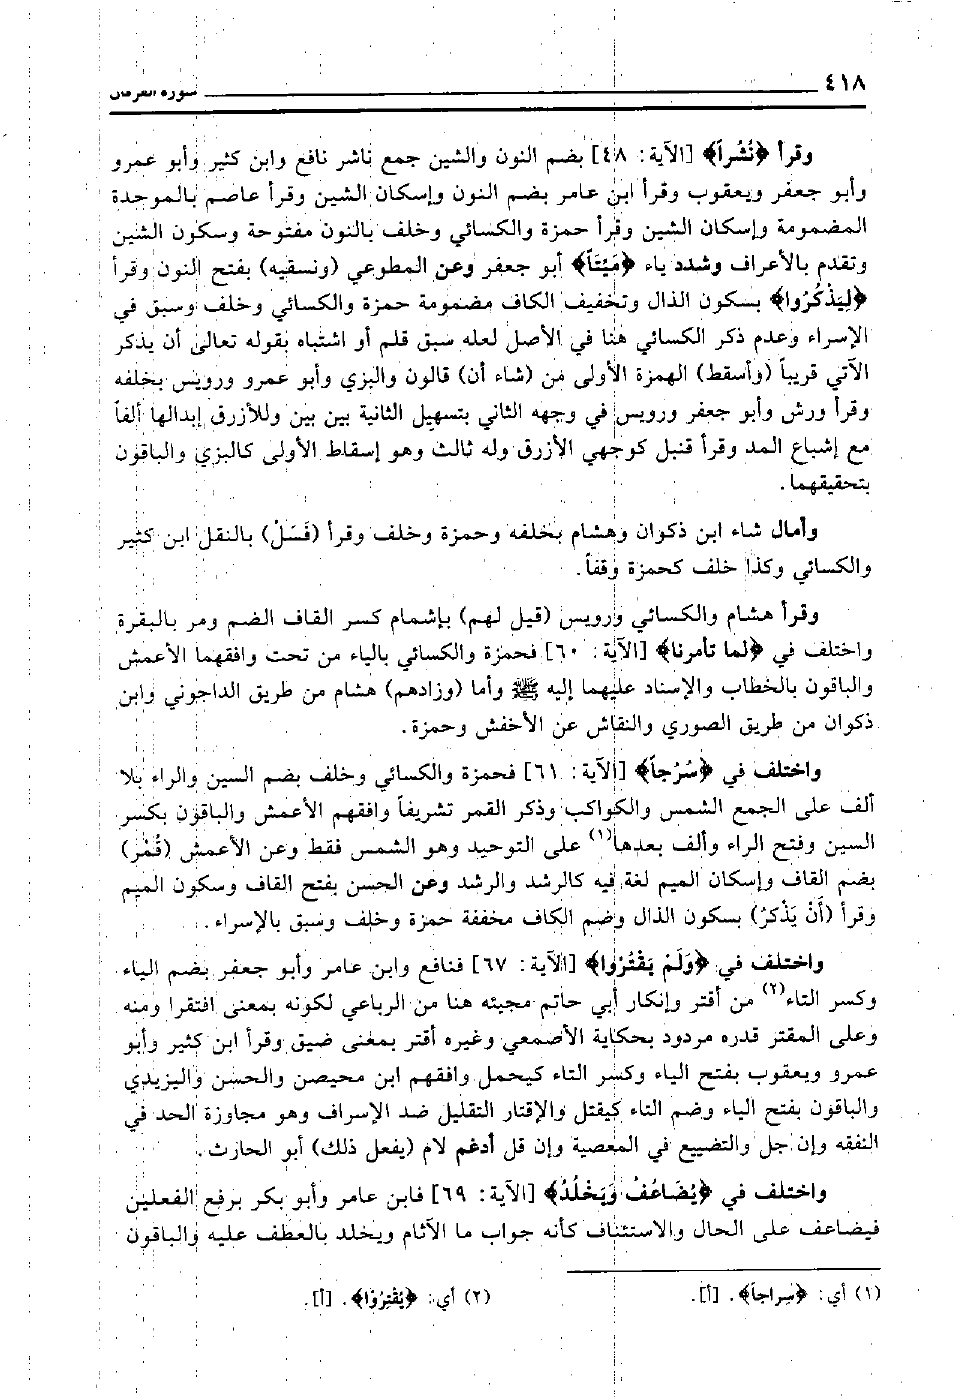 ٤١٨ سورة الفرقان
وقرأ ﴿نُشْراً﴾ [الآية: ٤٨] بضم النون والشين جمع ناشر نافع وابن كثير وأبو عمرو
وأبو جعفر ويعقوب وقرأ ابن عامر بضم النون وإسكان الشين وقرأ عاصم بالموحدة
المضمومة وإسكان الشين وقرأ حمزة والكسائي وخلف بالنون مفتوحة وسكون الشين
وتقدم بالأعراف وشدد ياء ﴿مَيْتَاً﴾ أبو جعفر وعن المطوعي (ونسقيه) بفتح النون وقرأ
﴿لِيَذْكُرُوا﴾ بسكون الذال وتخفيف الكاف مضمومة حمزة والكسائي وخلف وسبق في
الإسراء وعدم ذكر الكسائي هنا في الأصل لعله سبق قلم أو اشتباه بقوله تعالى أن يذكر
الآتي قريباً (وأسقط) الهمزة الأولى من (شاء أن) قالون والبزي وأبو عمرو ورويس بخلفه
وقرأ ورش وأبو جعفر ورويس في وجهه الثاني بتسهيل الثانية بين بين وللأزرق إبدالها ألفاً
مع إشباع المد وقرأ قنبل كوجهي الأزرق وله ثالث وهو إسقاط الأولى كالبزي والباقون
بتحقيقهما.
وأمال شاء ابن ذكوان وهشام بخلفه وحمزة وخلف وقرأ (فَسَلْ) بالنقل ابن كثير
والكسائي وكذا خلف كحمزة وقفاً.
وقرأ هشام والكسائي ورويس (قيل لهم) بإشمام كسر القاف الضم ومر بالبقرة
واختلف في ﴿لما تأمرنا﴾ [الآية: ٦٠] فحمزة والكسائي بالياء من تحت وافقهما الأعمش
والباقون بالخطاب والإسناد عليهما إليه ﷺ وأما (وزادهم) هشام من طريق الداجوني وابن
ذكوان من طريق الصوري والنقاش عن الأخفش وحمزة.
واختلف في ﴿سُرُجاً﴾ [الآية: ٦١] فحمزة والكسائي وخلف بضم السين والراء بلا
ألف على الجمع الشمس والكواكب وذكر القمر تشريفاً وافقهم الأعمش والباقون بكسر
السين وفتح الراء وألف بعدها(١) على التوحيد وهو الشمس فقط وعن الأعمش (قُمْر)
بضم القاف وإسكان الميم لغة فيه كالرشد والرشد وعن الحسن بفتح القاف وسكون الميم
وقرأ (أَنْ يَذْكرُ) بسكون الذال وضم الكاف مخففة حمزة وخلف وسبق بالإسراء.
واختلف في ﴿وَلَمْ يَقْتُرُوا﴾ [الآية: ٦٧] فنافع وابن عامر وأبو جعفر بضم الياء
وكسر التاء(٢) من أقتر وإنكار أبي حاتم مجيئه هنا من الرباعي لكونه بمعنى افتقرا ومنه
وعلى المقتر قدره مردود بحكاية الأصمعي وغيره أقتر بمعنى ضيق وقرأ ابن كثير وأبو
عمرو ويعقوب بفتح الياء وكسر التاء كيحمل وافقهم ابن محيصن والحسن واليزيدي
والباقون بفتح الياء وضم التاء كيقتل والإقتار التقليل ضد الإسراف وهو مجاوزة الحد في
النفقه وإن جل والتضييع في المعصية وإن قل أدغم لام (يفعل ذلك) أبو الحارث.
واختلف في ﴿يُضَاعَفُ وَيَخْلُدُ﴾ [الآية: ٦٩] فابن عامر وأبو بكر برفع الفعلين
فيضاعف على الحال والاستئناف كأنه جواب ما الآثام ويخلد بالعطف عليه والباقون
(١) أي: ﴿سِراجاً﴾. [أ]. (٢) أي: ﴿يُقْتِرُوا﴾. [أ].